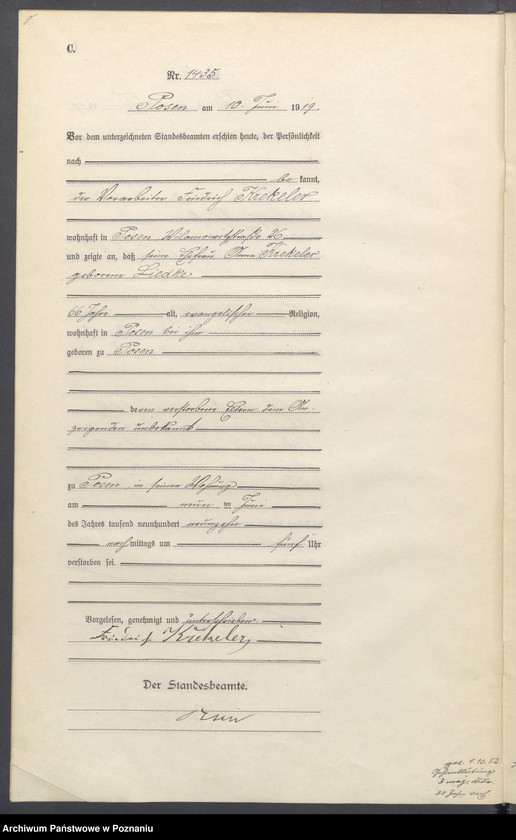 C.
Nr. 1435.
Posen am 10. Juni 1919.
Vor dem unterzeichneten Standesbeamten erschien heute, der Persönlichkeit
nach
be kannt,
der Vorarbeiter Friedrich Krekeler
wohnhaft in Posen, Wilamowitzstraße 26
und zeigte an, daß seine Ehefrau Anna Krekeler
geborene Liedke
66 Jahre alt, evangelischer Religion,
wohnhaft in Posen bei ihm
geboren zu Posen
deren verstorbene Eltern dem An-
zeigenden unbekannt
zu Posen in seiner Wohnung
am neun ten Juni
des Jahres tausend neunhundert neunzehn
nach mittags um fünf Uhr
verstorben sei.
Vorgelesen, genehmigt und unterschrieben.
Friedrich Krekeler
Der Standesbeamte.
Archiwum Państwowe w Poznaniu